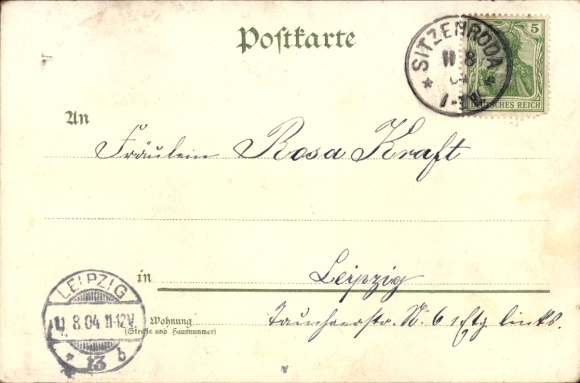 Postkarte
SITZENRODA
11 8
04
5
DEUTSCHES REICH
An
Fräulein Rosa Kraft
in Leipzig
LEIPZIG
11. 8.04 11-12V.
* 13 b
Wohnung
(Straße und Hausnummer)
Tauchaerstr. No. 6 1 Etg links.